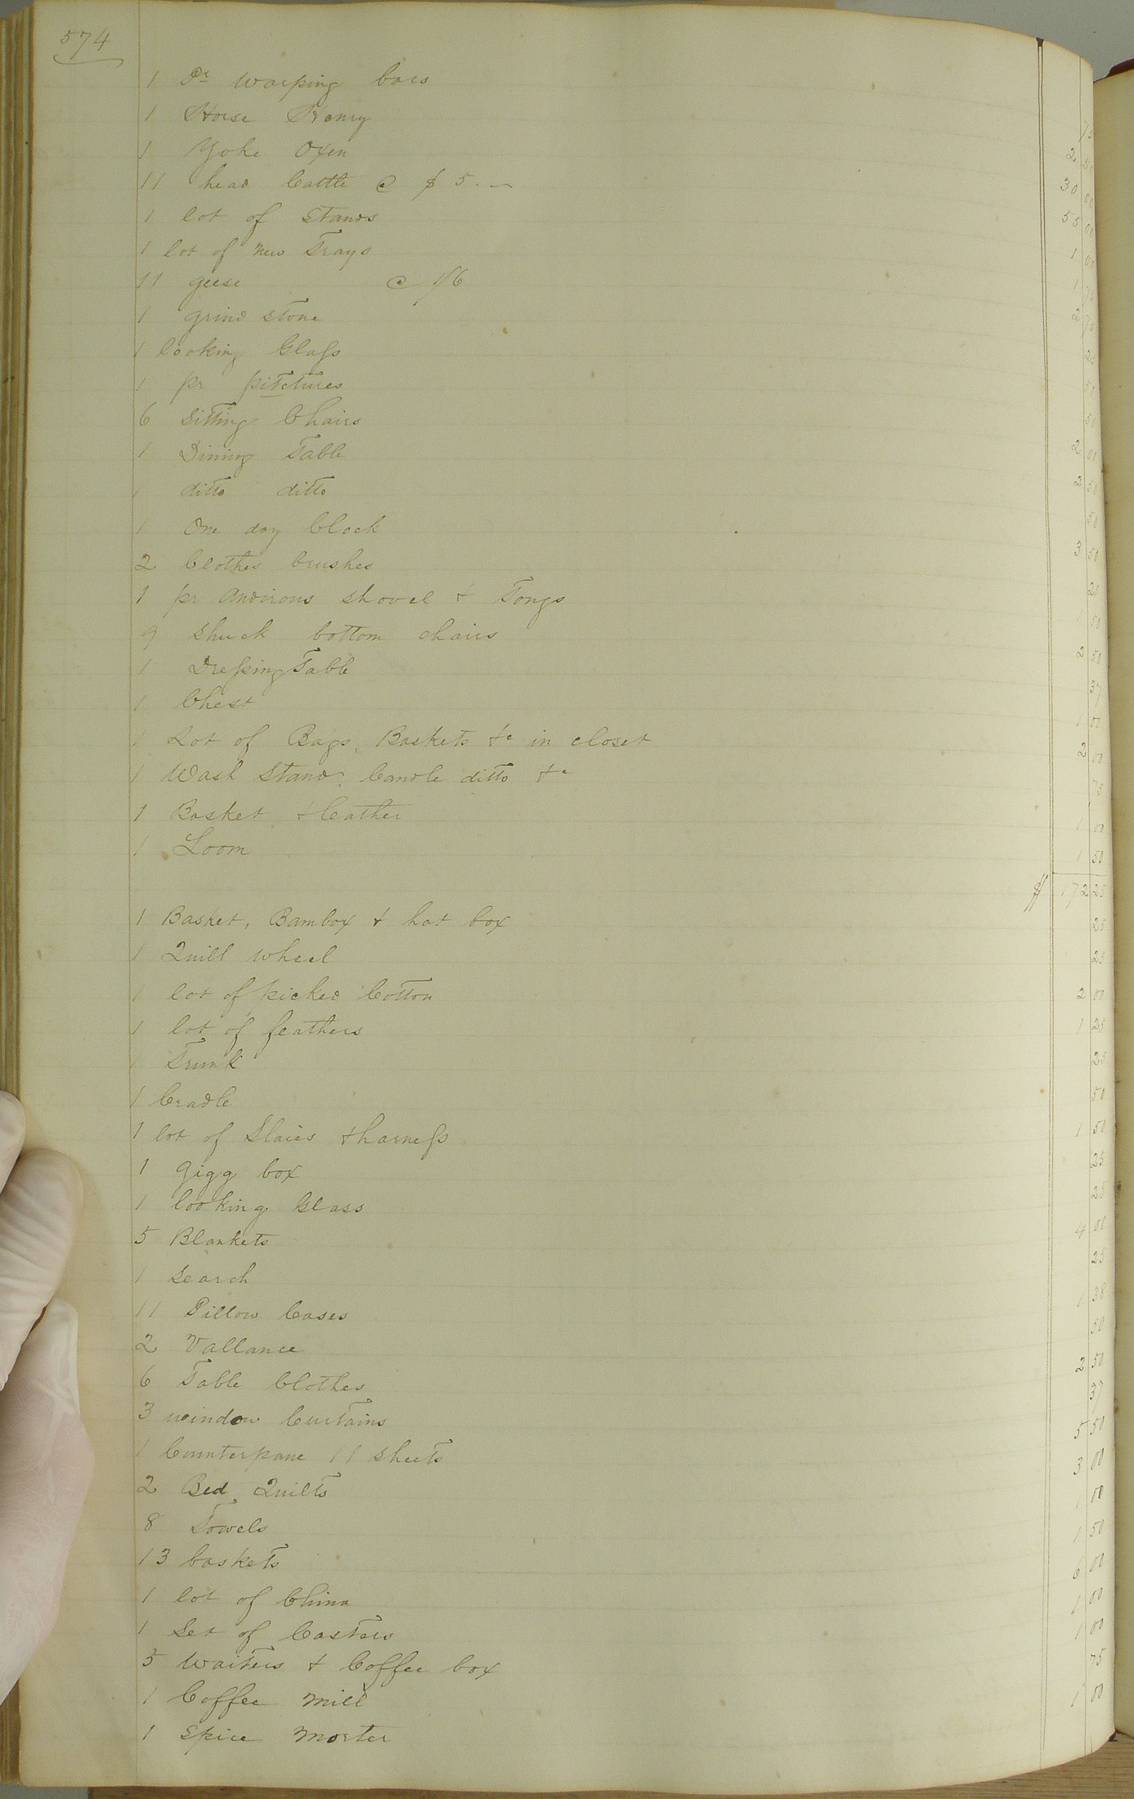 574
1 Pr Warping bars
1 Horse Henry 75
1 Yoke Oxen 2 50
11 head Cattle @ $5.— 30 00
1 lot of Stands 55 00
1 lot of new Trays 1 00
11 geese @ 1/6 1
1 grind stone 2
1 looking Glass 25
1 pr pitctures 50
6 Sitting Chairs 50
1 Dining Table 2 00
1 ditto ditto 2 50
1 One day Clock 50
2 Clothes brushes 3 50
1 pr Andirons shovel & Tongs 25
9 Shuck bottom chairs 1 50
1 Dressing Table 2 50
1 Chest 37
1 Lot of Bags, Baskets &c in closet 1 00
1 Wash Stand, Candle ditto &c 2 00
1 Basket & Leather 75
1 Loom 1 00
1 50
$ 172 25
1 Basket, Bambox & hat box 25
1 Quill wheel 25
1 lot of picked Cotton 2 00
1 lot of feathers 1 25
1 Trunk 25
1 Cradle 50
1 lot of Slaies & harness 1 50
1 Gigg box 25
1 looking Glass 25
5 Blankets 4 00
1 Search 25
11 Pillow Cases 1 38
2 Vallance 50
6 Table Clothes 2 50
3 window Curtains 37
1 Counterpane 11 sheets 5 50
2 Bed Quilts 3 00
8 Towels 1 00
13 baskets 1 50
1 lot of China 6 00
1 Set of Castors 1 00
5 Waiters & Coffee box 1 00
1 Coffee Mill 75
1 Spice Morter 1 00